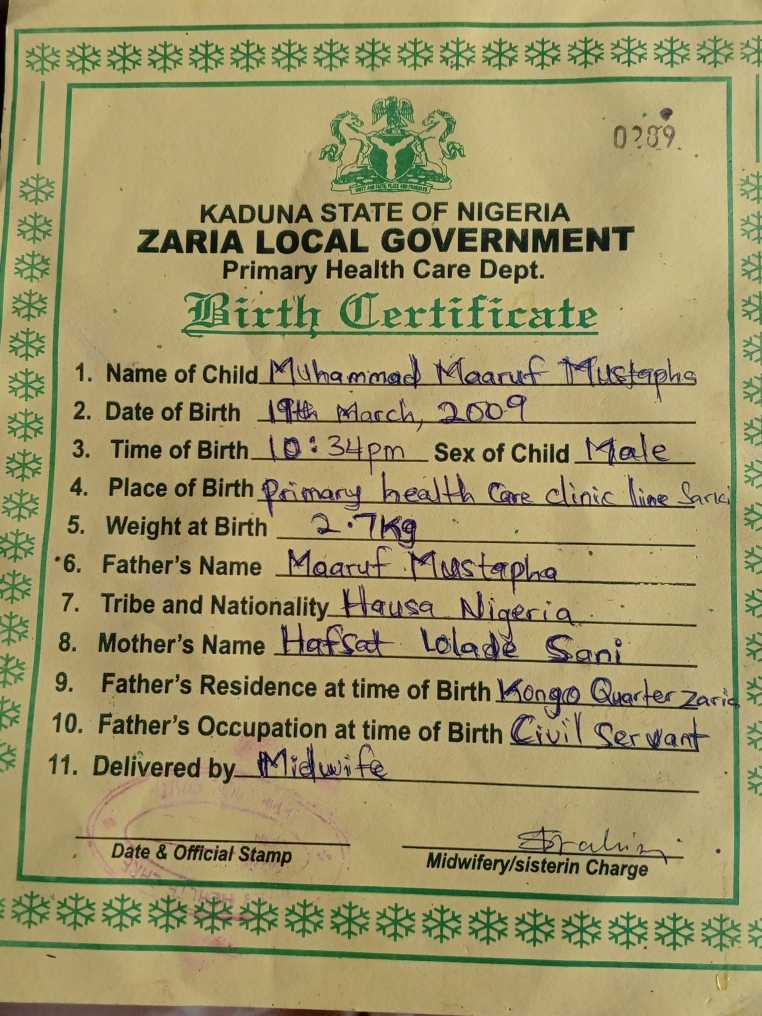 0289
KADUNA STATE OF NIGERIA
ZARIA LOCAL GOVERNMENT
Primary Health Care Dept.
Birth Certificate
1. Name of Child Muhammad Maaruf Mustapha
2. Date of Birth 19th March, 2009
3. Time of Birth 10:34pm Sex of Child Male
4. Place of Birth primary health care clinic line Sarki
5. Weight at Birth 2.7kg
6. Father's Name Maaruf Mustapha
7. Tribe and Nationality Hausa Nigeria
8. Mother's Name Hafsat Lolade Sani
9. Father's Residence at time of Birth Kongo Quarter Zaria
10. Father's Occupation at time of Birth Civil Servant
11. Delivered by Midwife
Date & Official Stamp
Midwifery/sisterin Charge